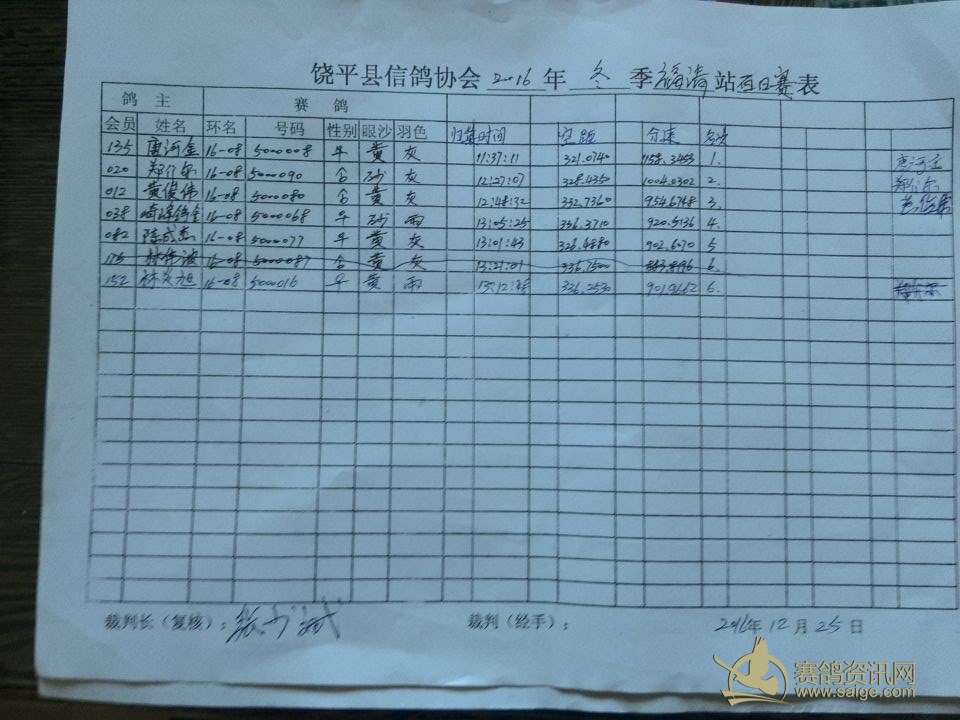 饶平县信鸽协会 2016 年 冬 季 福清 站 百日赛 表
鸽 主 赛 鸽
会员 姓名 环名 号码 性别 眼沙 羽色 归巢时间 空距 分速 名次
135 唐河金 16-08 5000008 黄 灰 11:37:11 321.0740 1158.3453 1.
020 16-08 5000090 沙 灰 12:27:07 328.4350 1004.0302 2.
012 黄俊伟 16-08 5000080 黄 灰 12:48:32 332.7360 954.6768 3.
038 16-08 5000068 沙 雨 13:05:25 336.3710 920.5136 4.
082 16-08 5000077 黄 灰 13:01:43 326.4880 902.6070 5
175 16-08 5000087 黄 灰 13:21:01 336.7500 6.
152 林炎旭 16-08 5000016 黄 雨 336.2530 6.
裁判长（复核）： 裁判（经手）： 2016年 12 月 25 日
赛鸽资讯网
www.saige.com